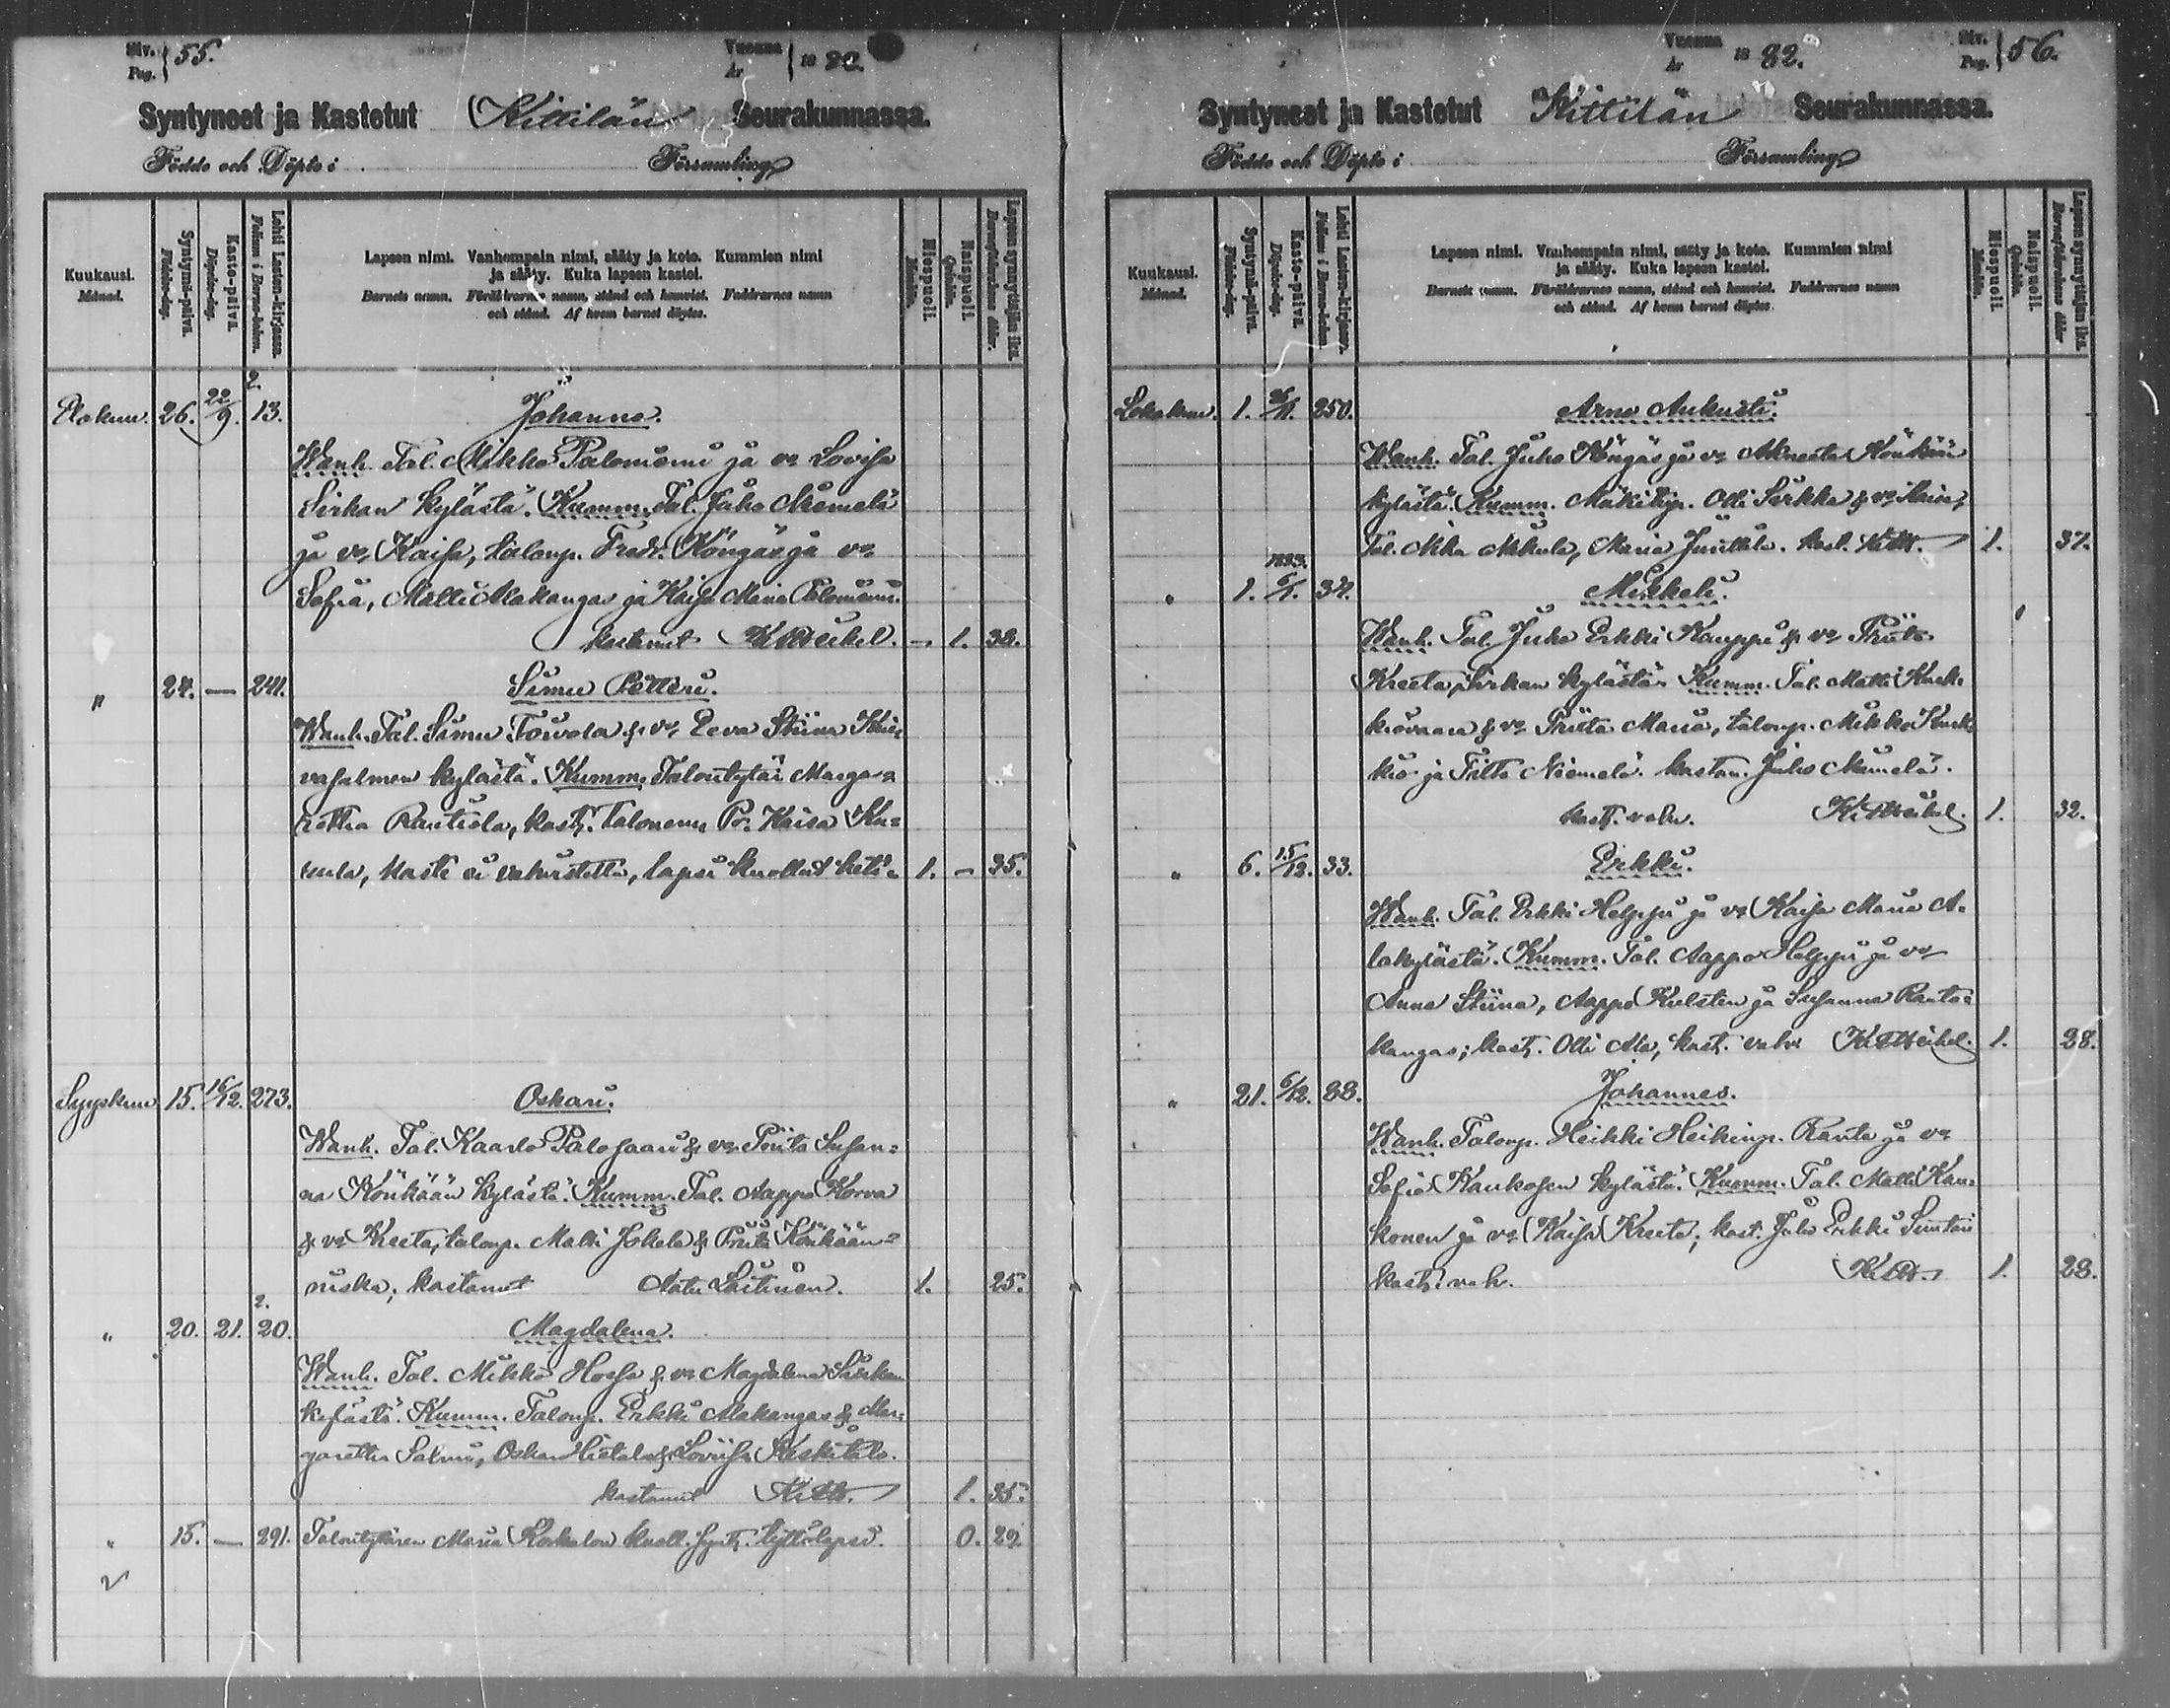 Siv. Pag. } 55.
Vuonna År } 1882.
Syntyneet ja Kastetut Kittilän Seurakunnassa.
Födde och Döpte i Församling
Kuukausi. Månad.
Syntymä-päivä. Födelse-dag.
Kaste-päivä. Döpelse-dag.
Lehti Lasten-kirjassa. Folium i Barna-boken.
Lapsen nimi. Vanhempain nimi, sääty ja koto. Kummien nimi
ja sääty. Kuka lapsen kastoi.
Barnets namn. Föräldrarnes namn, stånd och hemvist. Faddrarnes namn
och stånd. Af hvem barnet döptes.
Miespuoli. Mankön.
Naispuoli. Qvinkön.
Lapsen synnyttäjän ikä. Barnaföderskans ålder.
2.
Elokuu. 26. 22/9. 13. Johanna.
Wanh. Tal. Mikko Paloniemi ja vo Lovisa
Sirkan kylästä. Kumm. Tal. Juho Niemelä
ja vo Kaisa, taloup. Fredr. Köngäs ja vo
Sofia, Matti Alakangas ja Kaisa Maria Paloniemi.
kastanut K. A. Heikel. – 1. 38.
" 24. — 241. Simu Petteri.
Wanh. Tal. Simu Toivola & vo Eeva Stiina Kai-
vasalmen kylästä. Kumm. Talontytär Marga-
retha Rautiola, kast. Talonem. Pr. Kaisa Ku-
sula, kaste ei vahvistettu, lapsi kuollut heti. 1. – 35.
Syyskuu 15. 16/12. 273. Oskari.
Wanh. Tal. Kaarlo Palosaari & vo Priita Susan-
na Könkään kylästä. Kumm. Tal. Aappo Korva
& vo Kreeta, taloup. Matti Jokela & Priita Könkään-
niska; kastanut Aatu Laitinen. 1. 25.
2.
" 20. 21. 20. Magdalena.
Wanh. Tal. Mikko Hossa & vo Magdalena Sirkan
kylästä. Kumm. Taloup. Erkki Alakangas & Mar-
garetta Salmi, Oskar Hietala & Loviisa Keskitalo.
kastanut 1. 35.
" 15. — 291. Talontyttären Maria Korkalon kuoll. synt. tyttölapsi. 0. 29
Vuonna År 1882.
Siv. Pag. } 56.
Syntyneet ja Kastetut Kittilän Seurakunnassa.
Födde och Döpte i Församling
Kuukausi. Månad.
Syntymä-päivä. Födelse-dag.
Kaste-päivä. Döpelse-dag.
Lehti Lasten-kirjassa. Folium i Barna-boken.
Lapsen nimi. Vanhempain nimi, sääty ja koto. Kummien nimi
ja sääty. Kuka lapsen kastoi.
Barnets namn. Föräldrarnes namn, stånd och hemvist. Faddrarnes namn
och stånd. Af hvem barnet döptes.
Miespuoli. Mankön.
Naispuoli. Qvinkön.
Lapsen synnyttäjän ikä. Barnaföderskans ålder
Lokakuu. 1. 250. Arno Aukusti.
Wanh. Tal. Juho Köngäs ja vo Akneeta Könkään
kylästä. Kumm. Mäkitup. Olli Sirkka & vo
Tal. Mikkola, Maria Junttila. kast. 1. 37.
1883.
" 1. 6/1. 34. Mikkeli.
Wanh. Tal. Juho Erkki Kauppi & vo Priita
Kreeta, Sirkan kylästä. Kumm. Tal. Matti Kurk-
kiovaara & vo Priita Maria, taloup. Mikko Kurk-
kio ja Niemelä. kastan. Juho Niemelä.
kast. vahv. K. A. Heikel. 1. 32.
" 6. 15/12. 33. Erkki.
Wanh. Tal. Erkki Helppi ja vo Kaisa Maria A-
lakylästä. Kumm. Tal. Aappo Helppi ja vo
Anna Stiina, Aappo Kielsten ja Susanna Ranta-
kangas; kast. Olli Ala, kast. vahv. K. A. Heikel. 1. 28.
" 21. 6/12. 88. Johannes.
Wanh. Taloup. Heikki Heikinp. Ranta ja vo
Sofia Kaukosen kylästä. Kumm. Tal. Matti Kau-
konen ja vo Kaisa Kreeta; kast. Juho Erkki Sointari
kast. vah. 1. 28.